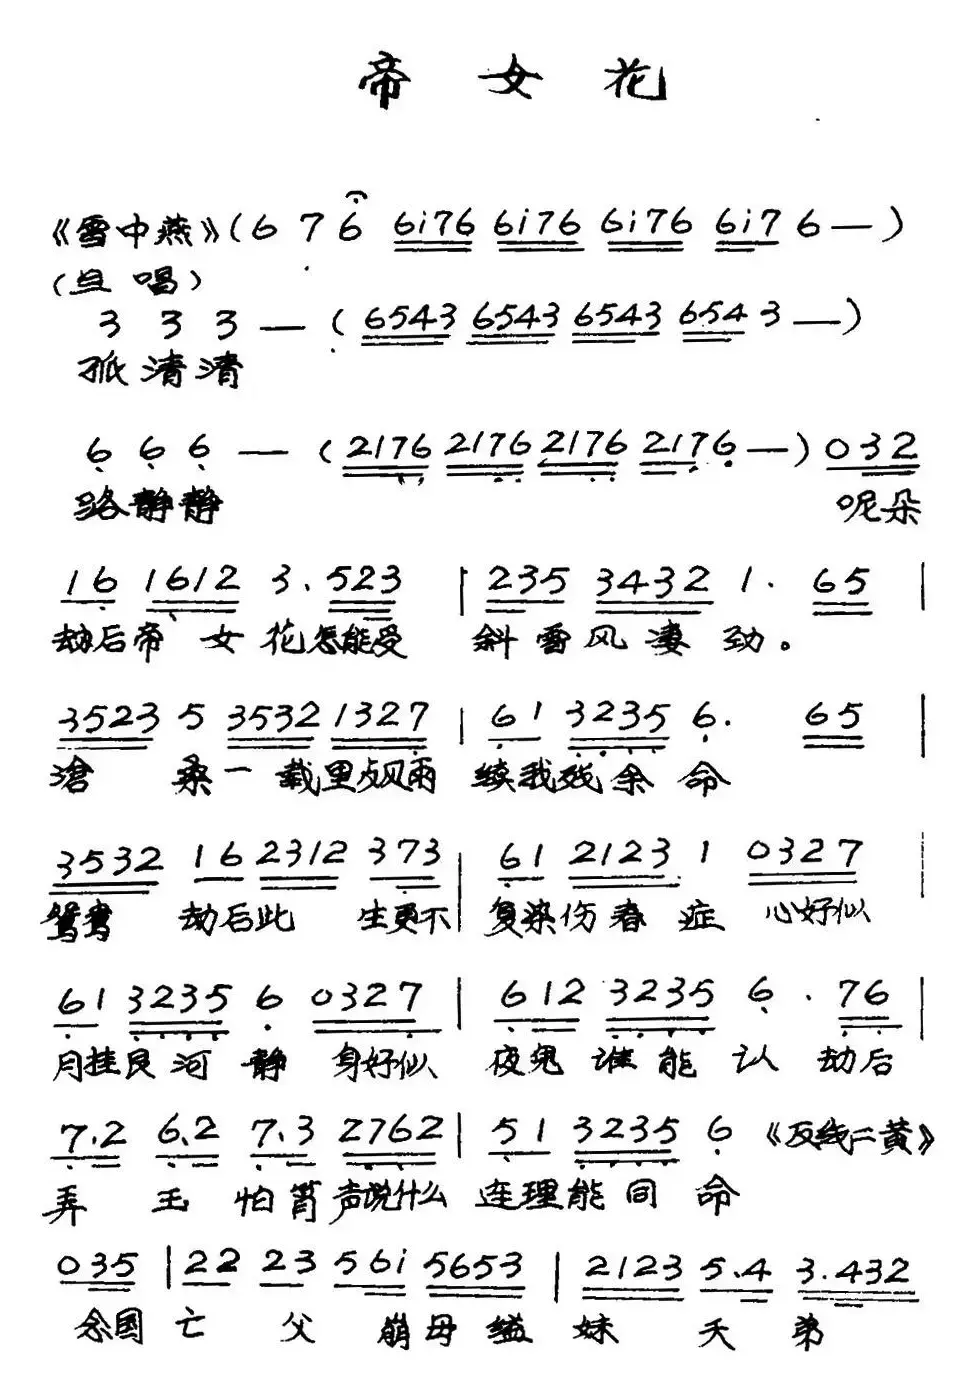 帝 女 花
《雪中燕》(6 7 6 6i76 6i76 6i76 6i7 6 — )
(旦 唱)
3 3 3 — ( 6543 6543 6543 654 3 — )
孤 清 清
6 6 6 — ( 2176 2176 2176 217 6 — ) 032
路 静 静 呢朵
16 1612 3. 523 | 235 3432 1. 65 |
劫后帝 女 花怎能受 斜 雪 风 凄 劲。
3523 5 3532 1327 | 61 3235 6. 65 |
沧 桑 一 载里点风雨 续我残 余 命
3532 16 2312 373 | 61 2123 1 0327 |
鸳鸯 劫后此 生更不 复染伤 春 症 心好似
61 3235 6 0327 | 612 3235 6 . 76 |
月挂艮 河 静 身好似 夜鬼 谁 能 认 劫后
7.2 6.2 7.3 2762 | 51 3235 6 《反线二黄》
弄 玉 怕 箫声说什么 连理能 同 命
035 | 22 23 56i 5653 | 2123 5.4 3.432
念国 亡 父 崩 母 缢 妹 夭 弟